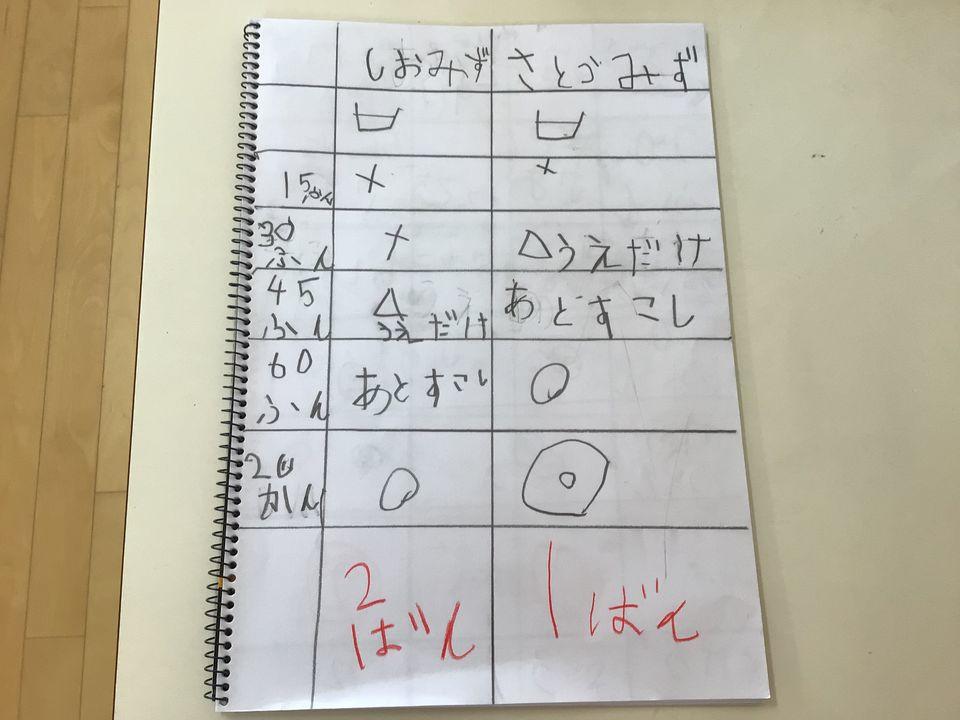 しおみず さとうみず
15ふん × ×
30ふん × △うえだけ
45ふん △うえだけ あとすこし
60ふん あとすこし ○
かん ○ ◎
2ばん 1ばん